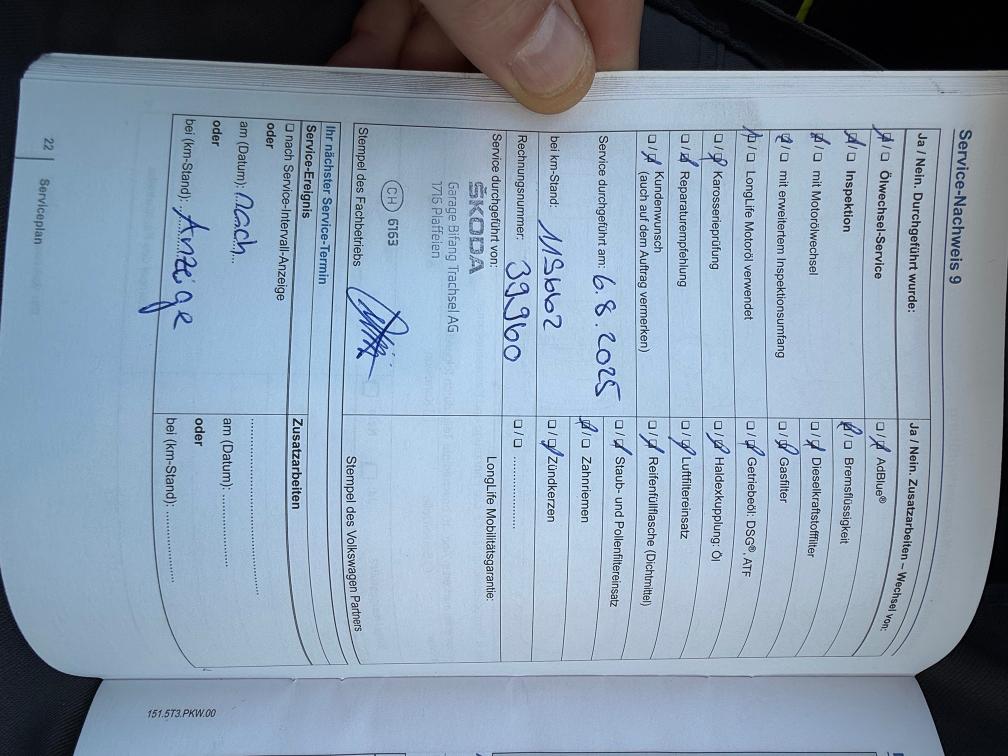 Service-Nachweis 9
Ja / Nein. Durchgeführt wurde:
☒ / ☐ Ölwechsel-Service
☒ / ☐ Inspektion
☒ / ☐ mit Motorölwechsel
☒ / ☐ mit erweitertem Inspektionsumfang
☒ / ☐ LongLife Motoröl verwendet
☐ / ☒ Karosserieprüfung
☐ / ☒ Reparaturempfehlung
☐ / ☒ Kundenwunsch
(auch auf dem Auftrag vermerken)
Service durchgeführt am: 6.8.2025
bei km-Stand: 115662
Rechnungsnummer: 39960
Service durchgeführt von:
ŠKODA
Garage Bifang Trachsel AG
1716 Plaffeien
CH 6163
Stempel des Fachbetriebs
Ja / Nein. Zusatzarbeiten – Wechsel von:
☐ / ☒ AdBlue®
☒ / ☐ Bremsflüssigkeit
☐ / ☒ Dieselkraftstofffilter
☐ / ☒ Gasfilter
☐ / ☒ Getriebeöl: DSG®, ATF
☐ / ☒ Haldexkupplung: Öl
☐ / ☒ Luftfiltereinsatz
☐ / ☒ Reifenfüllflasche (Dichtmittel)
☐ / ☒ Staub- und Pollenfiltereinsatz
☒ / ☐ Zahnriemen
☐ / ☒ Zündkerzen
☐ / ☐ ...............
LongLife Mobilitätsgarantie:
Stempel des Volkswagen Partners
Ihr nächster Service-Termin
Service-Ereignis
☐ nach Service-Intervall-Anzeige
oder
am (Datum): nach
oder
bei (km-Stand): Anzeige
Zusatzarbeiten
..............................
am (Datum): ...............
oder
bei (km-Stand): ...............
22 Serviceplan
151.5T3.PKW.00